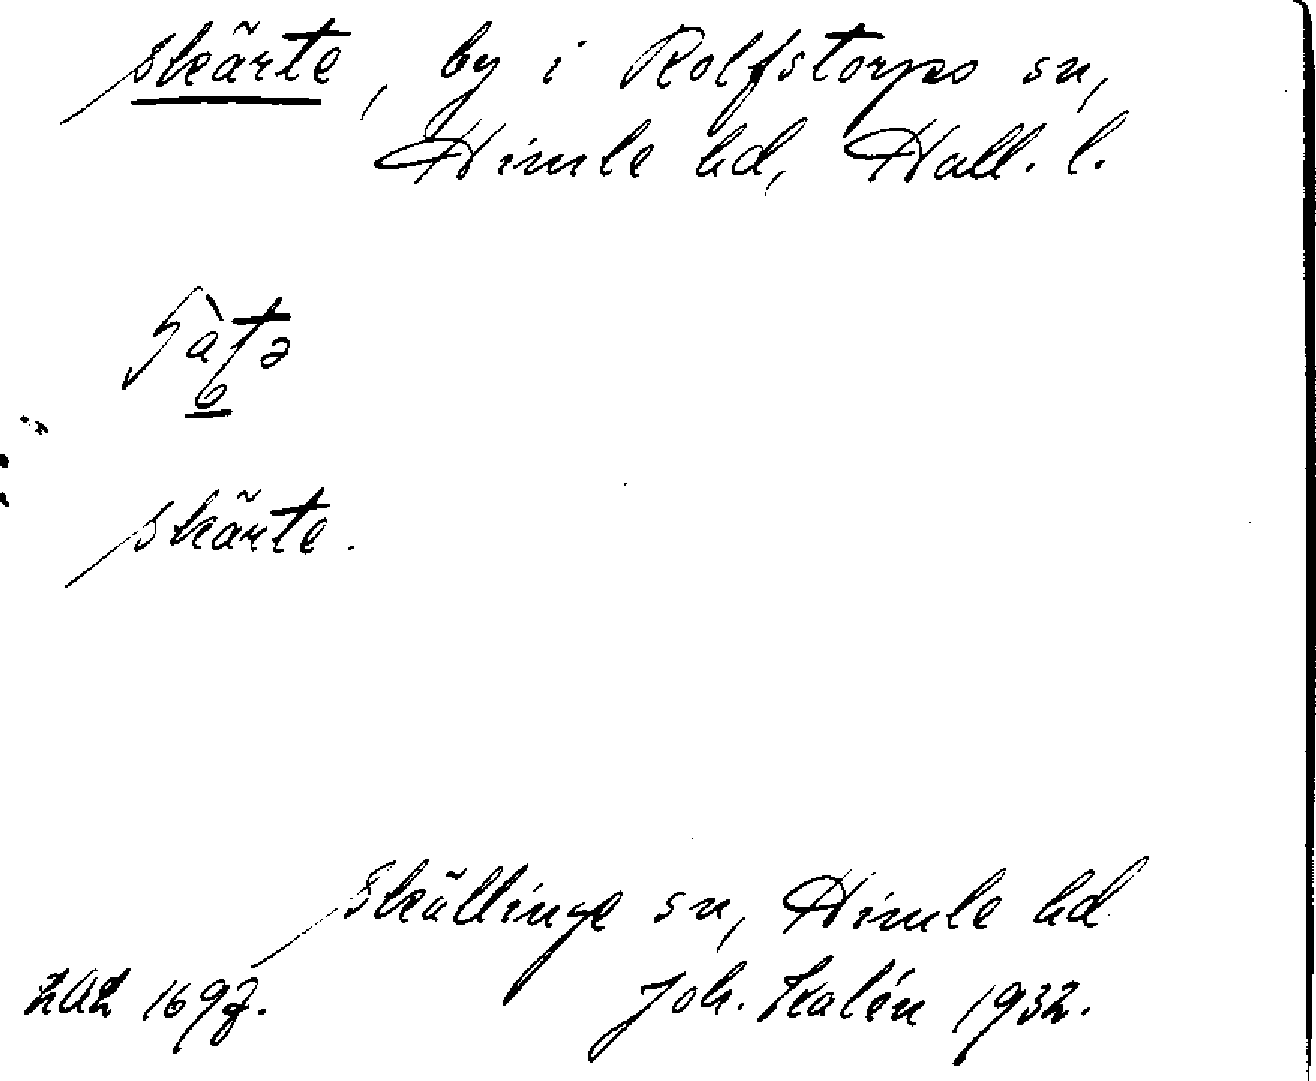 Skärte, by i Rolfstorps sn,
Himle hd, Hall. l.
Skärte.
Skällinge sn, Himle hd
LAL 1697. Joh. Kalén 1932.